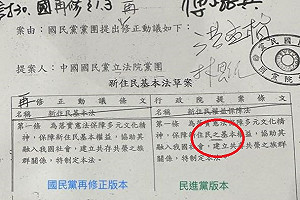 案由：國民黨黨團提出修正動議如下：
提案人：中國國民黨立法院黨團
新住民基本法草案
再修正動議條文
行政院提案條文
名稱 新住民基本法
名稱 新住民權益保障法
第一條 為落實憲法保障多元文化精
神，保障新住民基本權益，協助其
融入我國社會，建立共存共榮之族
群關係，特制定本法。
第一條 為落實憲法保障多元文化精
神，保障新住民之基本權益，協助其
融入我國社會，建立共存共榮之族
群關係，特制定本法。
國民黨再修正版本
民進黨版本